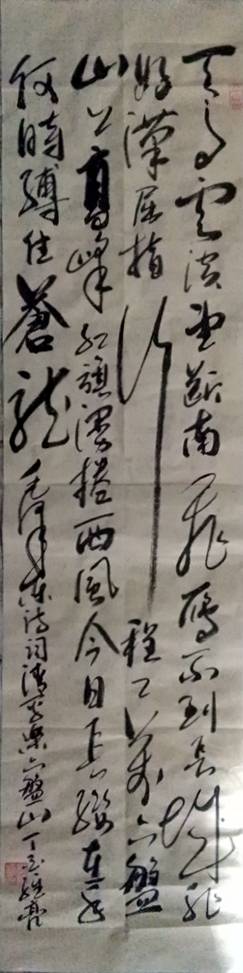 天高雲淡望斷南飛雁不到長城非
好漢屈指行程二萬六盤
山上高峰紅旗漫捲西風今日長纓在手
何時縛住蒼龍 毛澤東詩詞清平樂六盤山